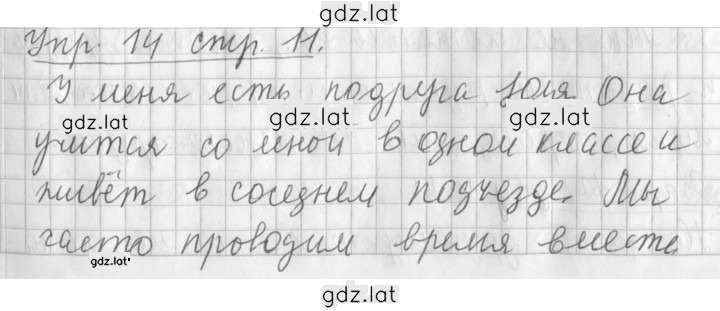 gdz.lat
Упр. 14 стр. 11.
У меня есть подруга Юля. Она
gdz.lat gdz.lat gdz.lat
учится со мной в одном классе и
живёт в соседнем подъезде. Мы
часто проводим время вместе.
gdz.lat
gdz.lat